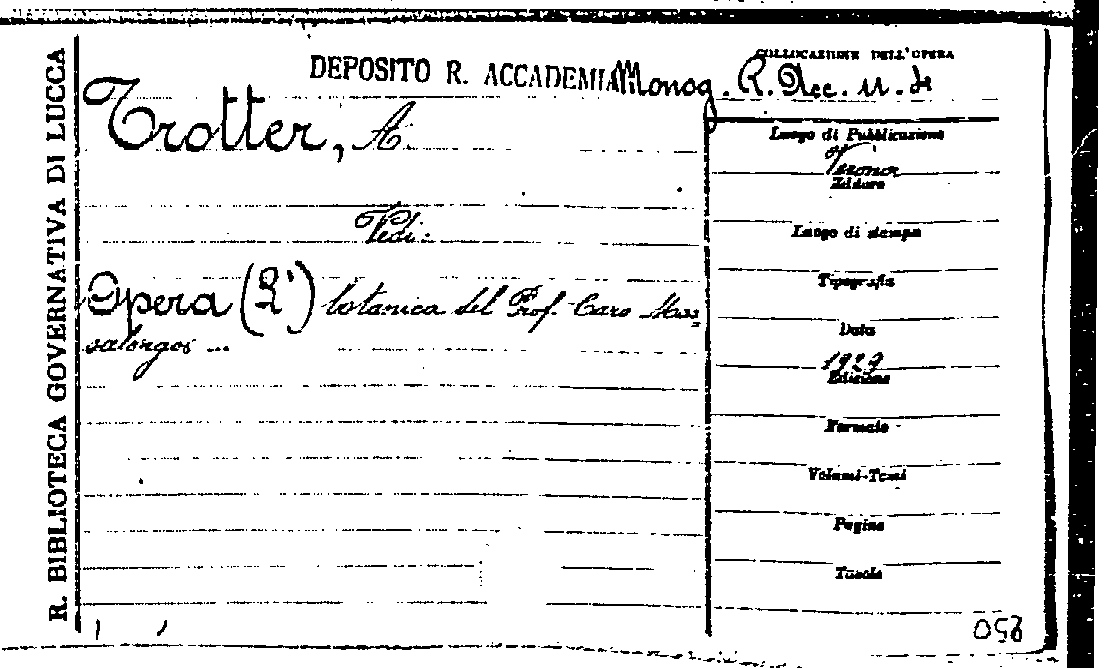 R. BIBLIOTECA GOVERNATIVA DI LUCCA
DEPOSITO R. ACCADEMIA
COLLOCAZIONE DELL'OPERA
Monog. R. Acc. u. de
Trotter, A.
Vedi:
Opera (L') botanica del Prof. Caro Mas=
salongo ...
Luogo di Pubblicazione
Verona
Editore
Luogo di stampa
Tipografia
Data
1929
Edizione
Formato
Volumi-Tomi
Pagine
Tavole